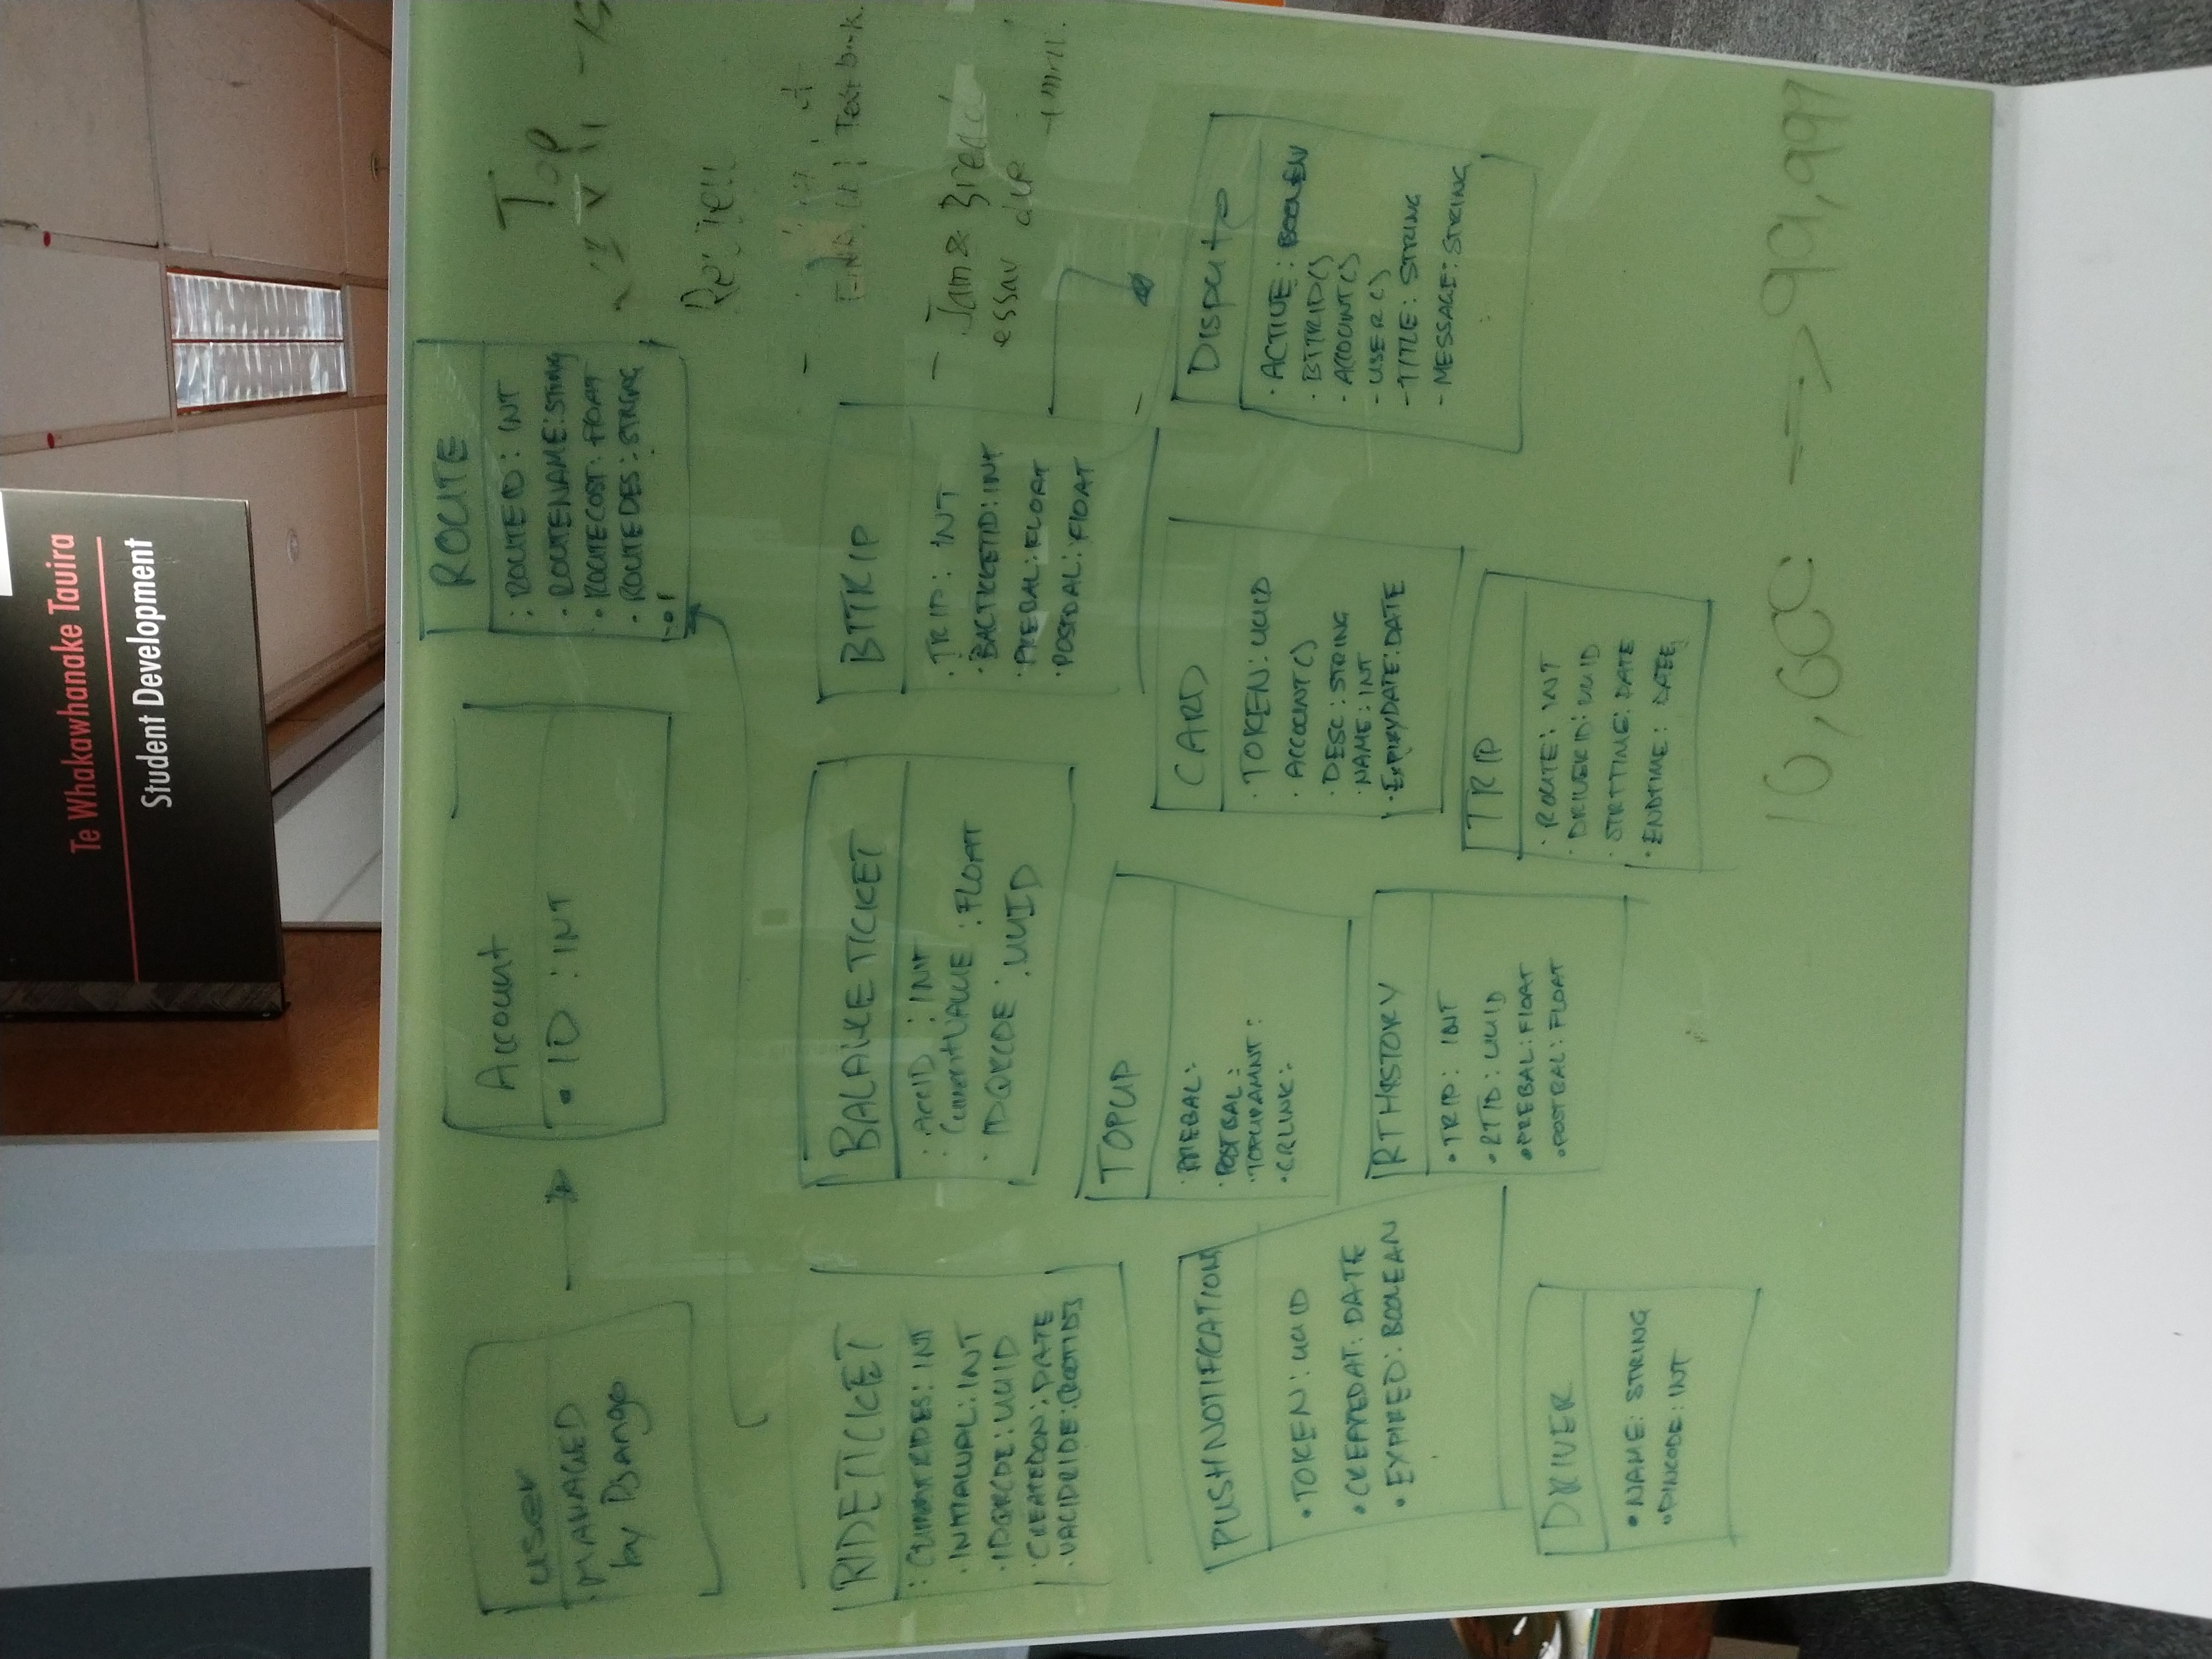 Te Whakawhanake Tauira
Student Development
user
MANAGED
by Django
Account
• ID : INT
ROUTE
: ROUTEID : INT
• ROUTENAME: STRING
• ROUTECOST: FLOAT
• ROUTEDES: STRING
Top
Review
Text book.
- Jam & Bread
essay due
RIDETICKET
: CURRENTRIDES: INT
• INITIALVAL: INT
• IDQRCDE: UUID
• CREATEDON: DATE
• VALIDRIDE:
BALANCE TICKET
• ACCID : INT
• CurrentVALUE : FLOAT
• IDQRCDE : UUID
BTTRIP
• TRIP: INT
• BACTICKETID: INT
• PREBAL: FLOAT
• POSTBAL: FLOAT
TOPUP
• PREBAL:
• POSTBAL:
• TOPUPAMNT :
• CRLINK:
PUSHNOTIFICATION
• TOKEN: UUID
• CREATEDAT: DATE
• EXPIRED: BOOLEAN
CARD
• TOKEN: UUID
• ACCOUNT()
• DESC: STRING
• NAME: INT
• EXPIRYDATE: DATE
Dispute
• ACTIVE: BOOLEN
• BTTRID()
• ACCOUNT()
- USER()
- TITLE: STRING
- MESSAGE: STRING
RTHISTORY
• TRIP: INT
• RTID: UUID
• PREBAL: FLOAT
• POSTBAL: FLOAT
TRIP
• ROUTE: INT
• DRIVERID: UUID
• STRTTIME: DATE
• ENDTIME: DATE
DRIVER
• NAME: STRING
• PINCODE: INT
10,000 --> 99,999